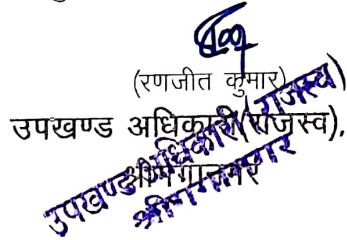 (रणजीत कुमार)
उपखण्ड अधिकारी(राजस्व),
श्रीगंगानगर
उपखण्ड अधिकारी (राजस्व)
श्रीगंगानगर